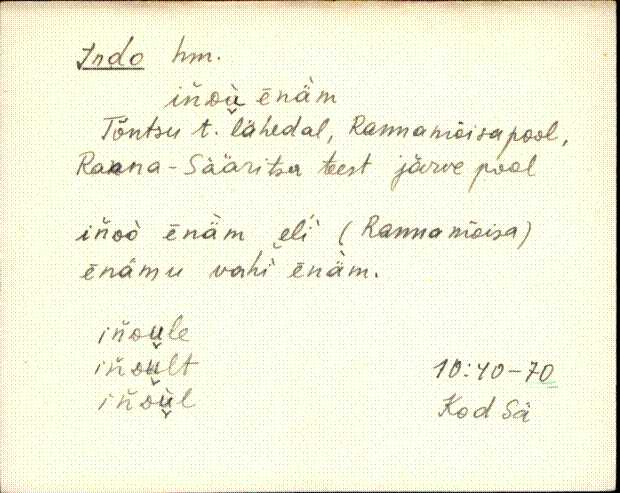 Indo hm.
iñou̬̇ ēnäm
Tõntsu t. lähedal, Rannamõisapool,
Ranna-Sääritsa teest järve pool
iñoò ēnäm eĺi (Rannamõisa)
ēnämu vahi ēnäm.
iñou̬le
iñou̬lt
iñou̬l
10:40-70
Kod Sä